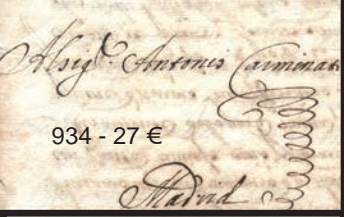 Al sig.r Antonio Caiminati
934 - 27 €
Madrid